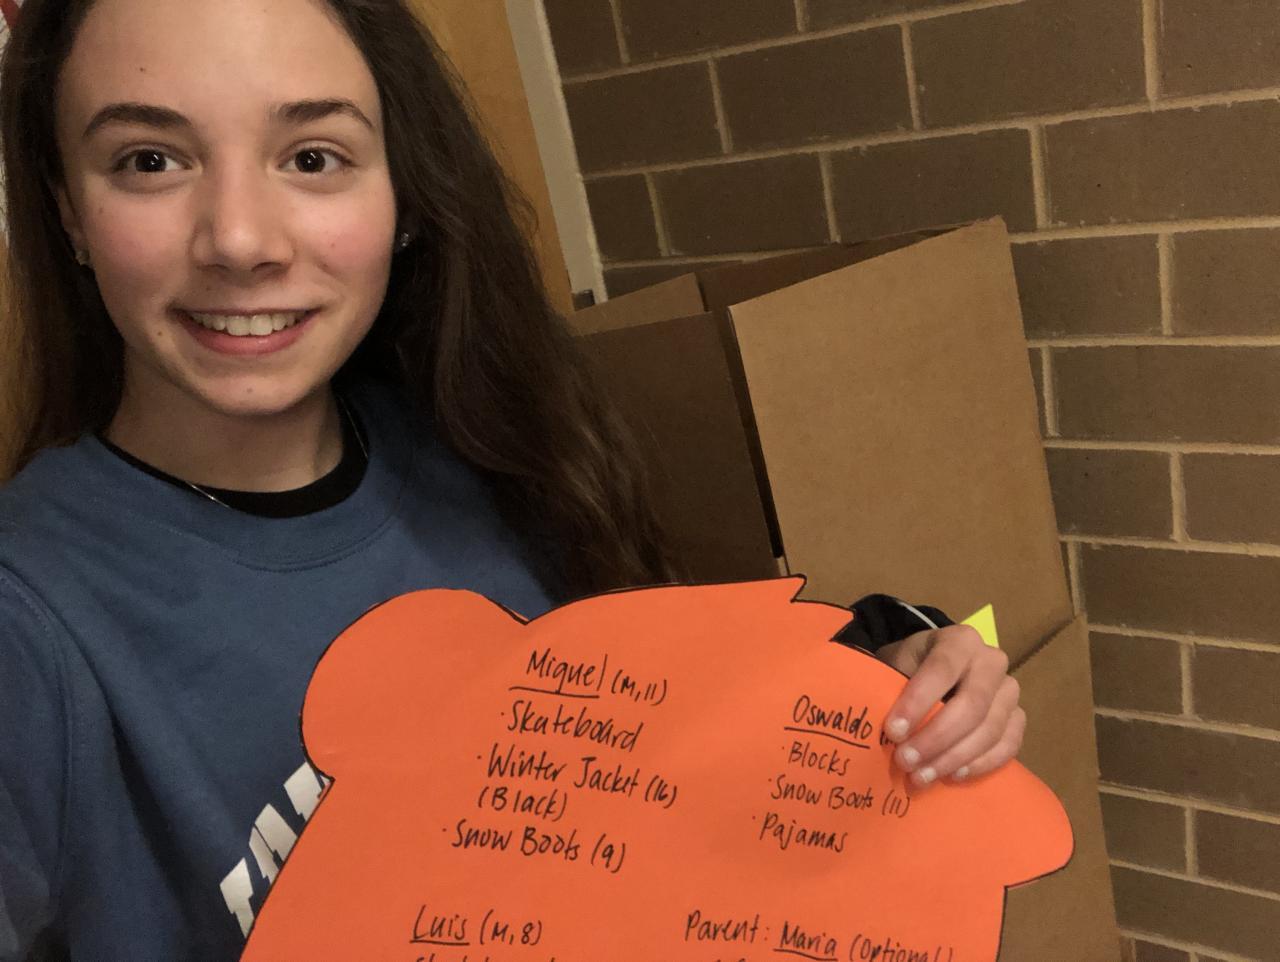 Miguel (M, 11)
· Skateboard
· Winter Jacket (16)
(Black)
· Snow Boots (9)
Oswaldo
· Blocks
· Snow Boots (11)
· Pajamas
Luis (M, 8)
Parent: Maria (Optional)